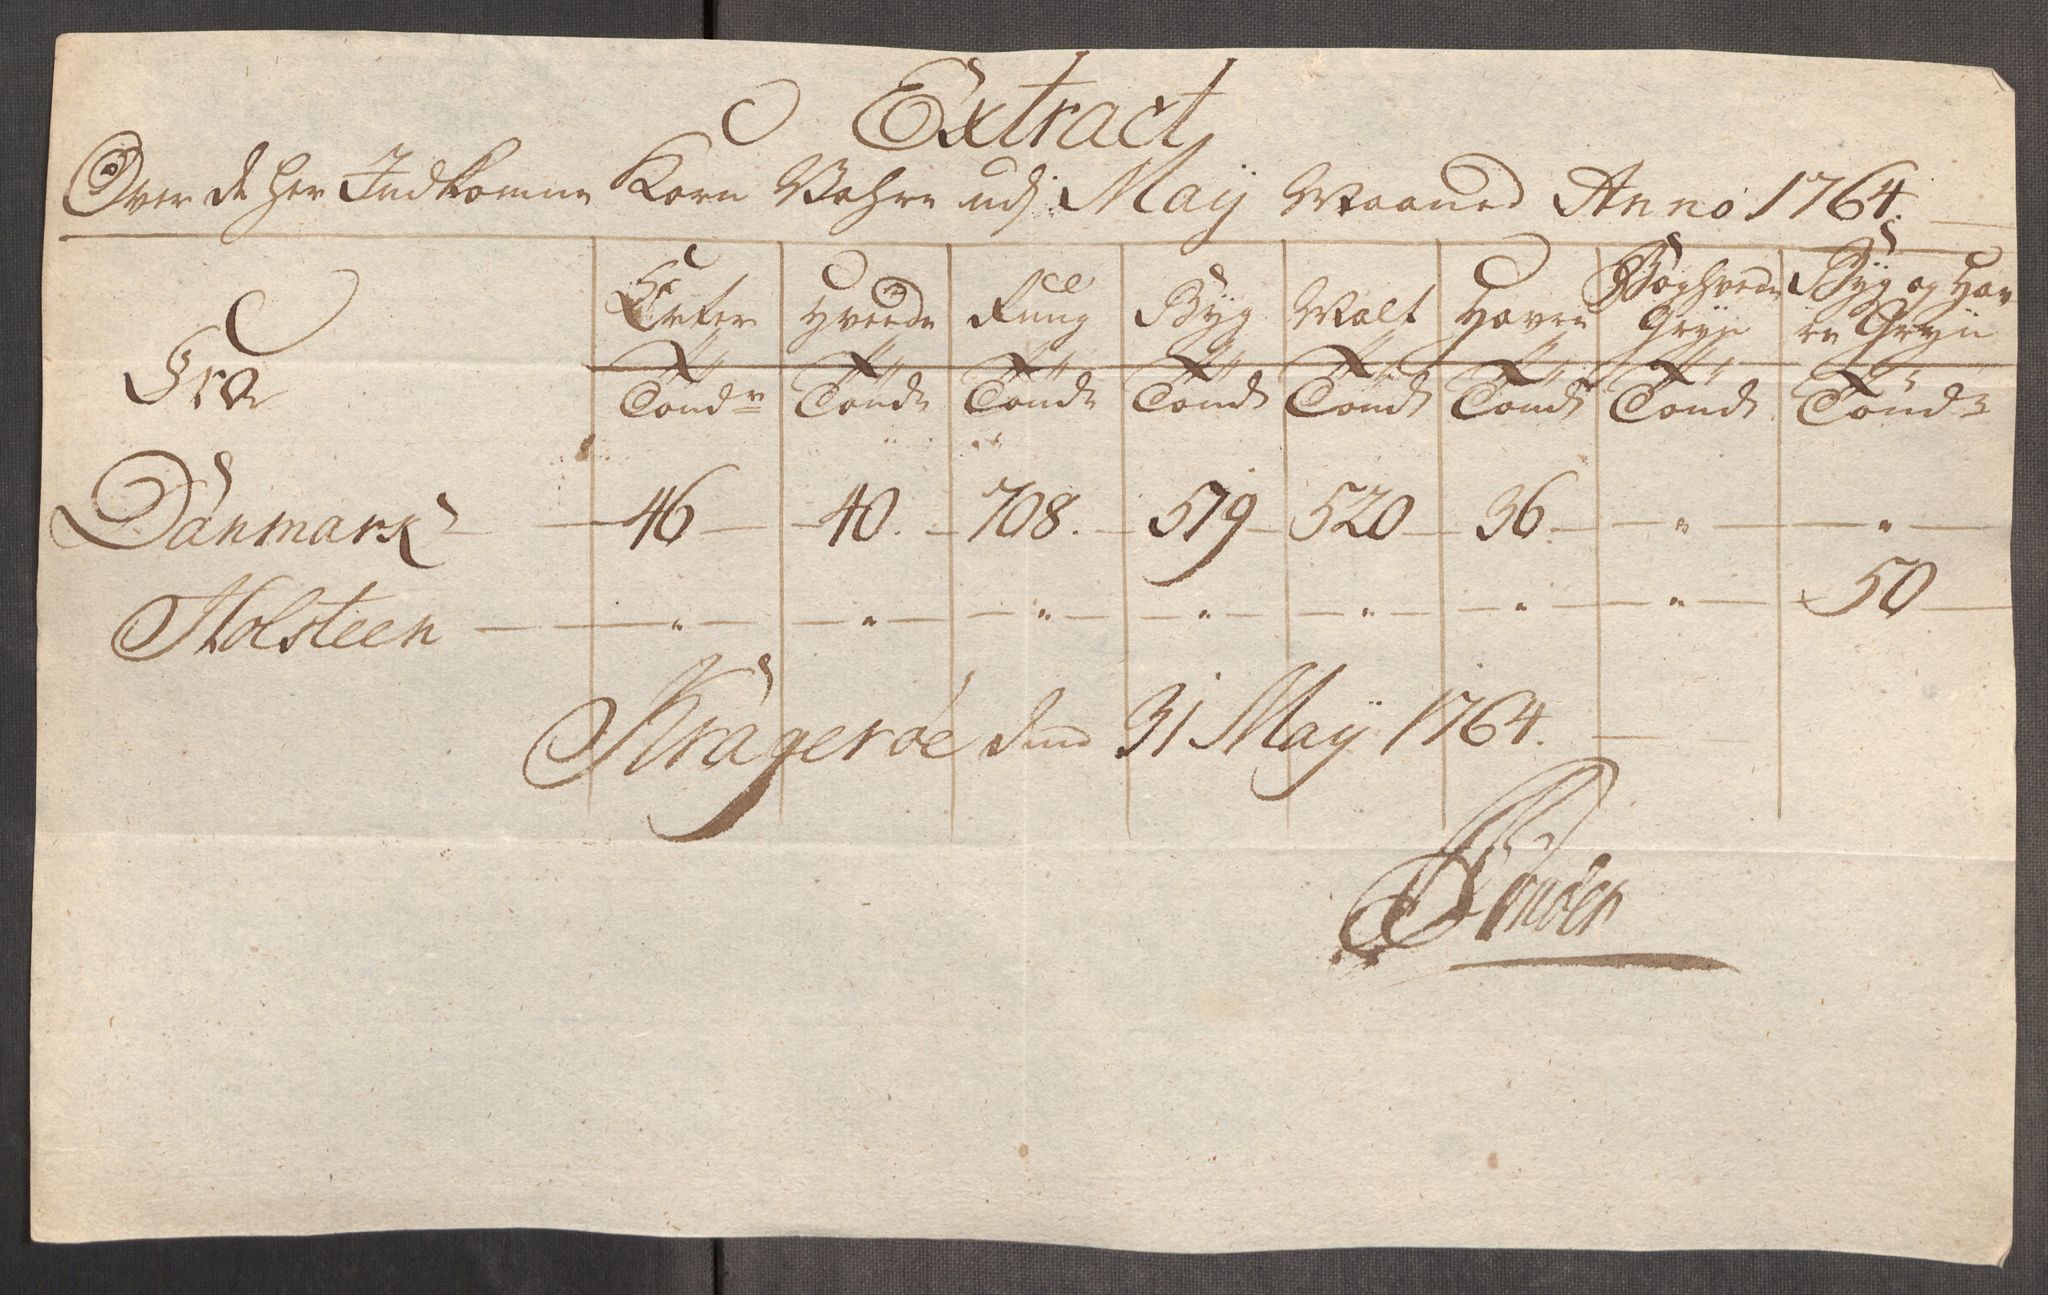 Extract
Over de her Indkomne Korn Vahre udj May Maaned Anno 1764.
Fra
Erter Hveede Rüug Byg Malt Havre Boghvede Gryn Byg og Hav
re Gryn
Tondr Tönde Tönde Tönd Tönd Tönd Tönd Tönde
Danmark 46 40. 708. 519 520 36. " "
Holsteen " " " " " " " 50
Kragerøe dend 31 May 1764.